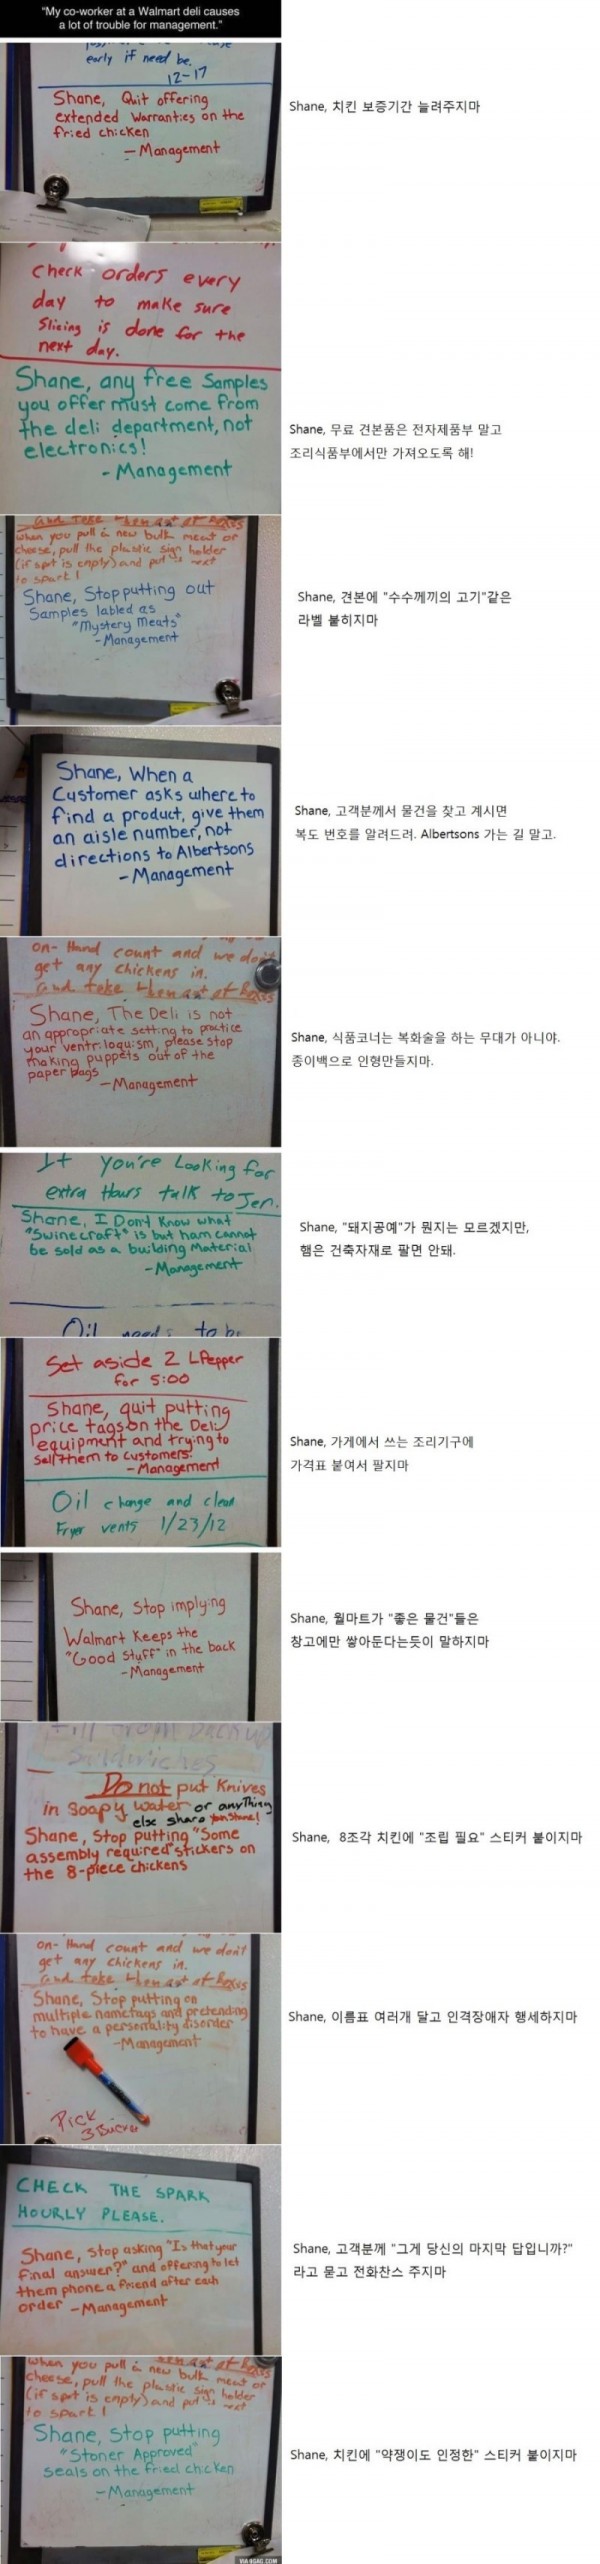 "My co-worker at a Walmart deli causes
a lot of trouble for management."
early if need be.
12-17
Shane, Quit offering
extended warranties on the
fried chicken
- Management
Shane, 치킨 보증기간 늘려주지마
check orders every
day to make sure
Slicing is done for the
next day.
Shane, any free Samples
you offer must come from
the deli department, not
electronics!
- Management
Shane, 무료 견본품은 전자제품부 말고
조리식품부에서만 가져오도록 해!
and take them out of boxes
when you pull a new bulk meat or
cheese, pull the plastic sign holder
(if spot is empty) and put is next
to spark!
Shane, Stop putting out
Samples labled as
"Mystery Meats"
- Management
Shane, 견본에 "수수께끼의 고기"같은
라벨 붙히지마
Shane, When a
Customer asks where to
find a product, give them
an aisle number, not
directions to Albertsons
- Management
Shane, 고객분께서 물건을 찾고 계시면
복도 번호를 알려드려. Albertsons 가는 길 말고.
on-Hand count and we don't
get any chickens in.
and take them out of boxes
Shane, The Deli is not
an appropriate setting to practice
your ventriloquism, please stop
making puppets out of the
paper bags
- Management
Shane, 식품코너는 복화술을 하는 무대가 아니야.
종이백으로 인형만들지마.
If you're Looking for
extra Hours talk to Jen.
Shane, I Don't Know what
"Swinecraft" is but ham cannot
be sold as a building Material
- Management
Oil needs to be
Shane, "돼지공예"가 뭔지는 모르겠지만,
햄은 건축자재로 팔면 안돼.
Set aside 2 LPepper
for 5:00
Shane, quit putting
price tags on the Deli
equipment and trying to
sell them to customers.
- Management
Oil change and clean
Fryer vents 1/23/12
Shane, 가게에서 쓰는 조리기구에
가격표 붙여서 팔지마
Shane, Stop implying
Walmart Keeps the
"Good Stuff" in the back
- Management
Shane, 월마트가 "좋은 물건"들은
창고에만 쌓아둔다는듯이 말하지마
Sandwiches
Do not put Knives
in soapy water or anything
else sharp
Shane, Stop putting "Some
assembly required" stickers on
the 8-piece chickens
Shane, 8조각 치킨에 "조립 필요" 스티커 붙이지마
on-Hand count and we don't
get any chickens in.
and take them out of boxes
Shane, Stop putting on
multiple nametags and pretending
to have a personality disorder
- Management
Pick
3 Bucket
Shane, 이름표 여러개 달고 인격장애자 행세하지마
CHECK THE SPARK
HOURLY PLEASE.
Shane, Stop asking "Is that your
final answer?" and offering to let
them phone a friend after each
order - Management
Shane, 고객분께 "그게 당신의 마지막 답입니까?"
라고 묻고 전화찬스 주지마
when you pull a new bulk meat or
cheese, pull the plastic sign holder
(if spot is empty) and put is next
to spark!
Shane, Stop putting
"Stoner Approved"
seals on the fried chicken
- Management
Shane, 치킨에 "약쟁이도 인정한" 스티커 붙이지마
VIA 9GAG.COM